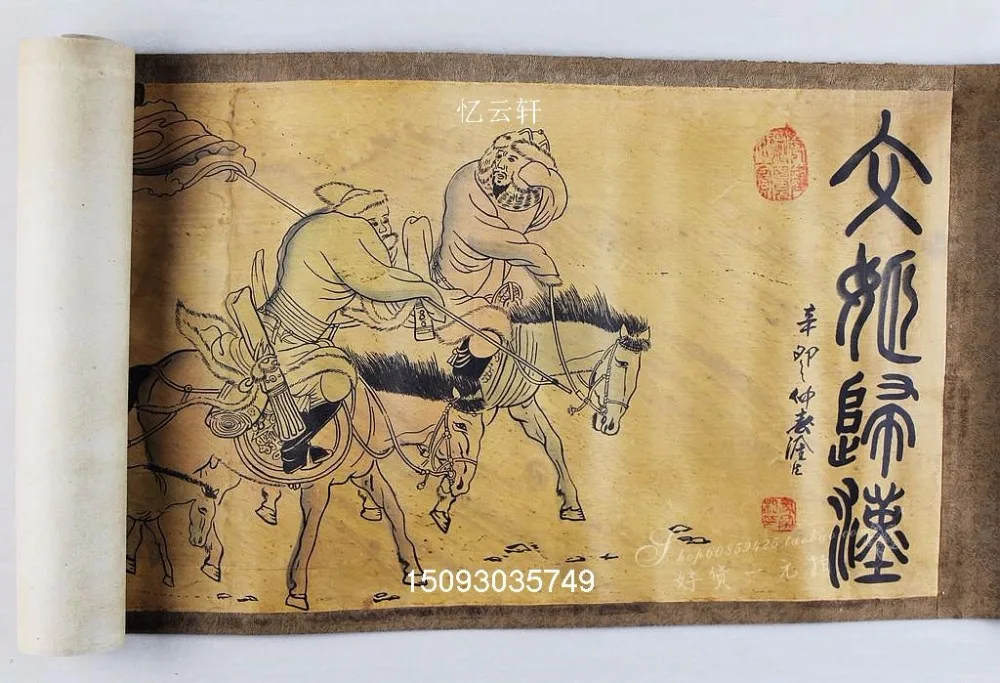 忆云轩
文姬歸漢
辛卯仲春
shop60859425.taobao
好货一元拍
15093035749